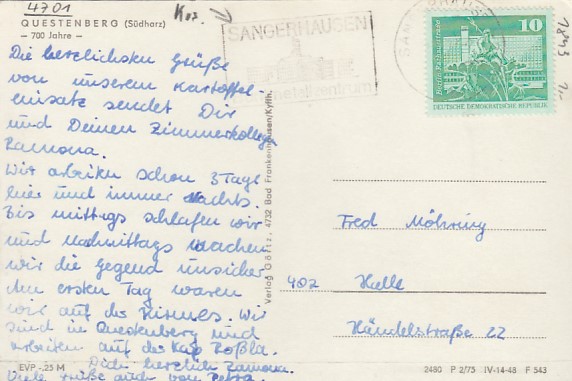 4701
QUESTENBERG (Südharz)
— 700 Jahre —
Die herzlichsten Grüße
von unserem Kartoffel-
einsatz sendet Dir
und Deinen Zimmerkollegen
Ramona.
Wir arbeiten schon 3 Tage
hier und immer nachts.
Bis mittags schlafen wir
und Nachmittags machen
wir die Gegend unsicher
Am ersten Tag waren
wir auf der Kirmes. Wir
sind in Questenberg und
arbeiten auf der Kap Roßla.
Dich herzlich Ramona.
Viele Grüße auch von Petra
EVP -,25 M
Verlag Görtz, 4732 Bad Frankenhausen/Kyffh.
SANGERHAUSEN
10
DEUTSCHE DEMOKRATISCHE REPUBLIK
Fred Möhring
402 Halle
Händelstraße 22
2480 P 2/75 IV-14-48 F 543